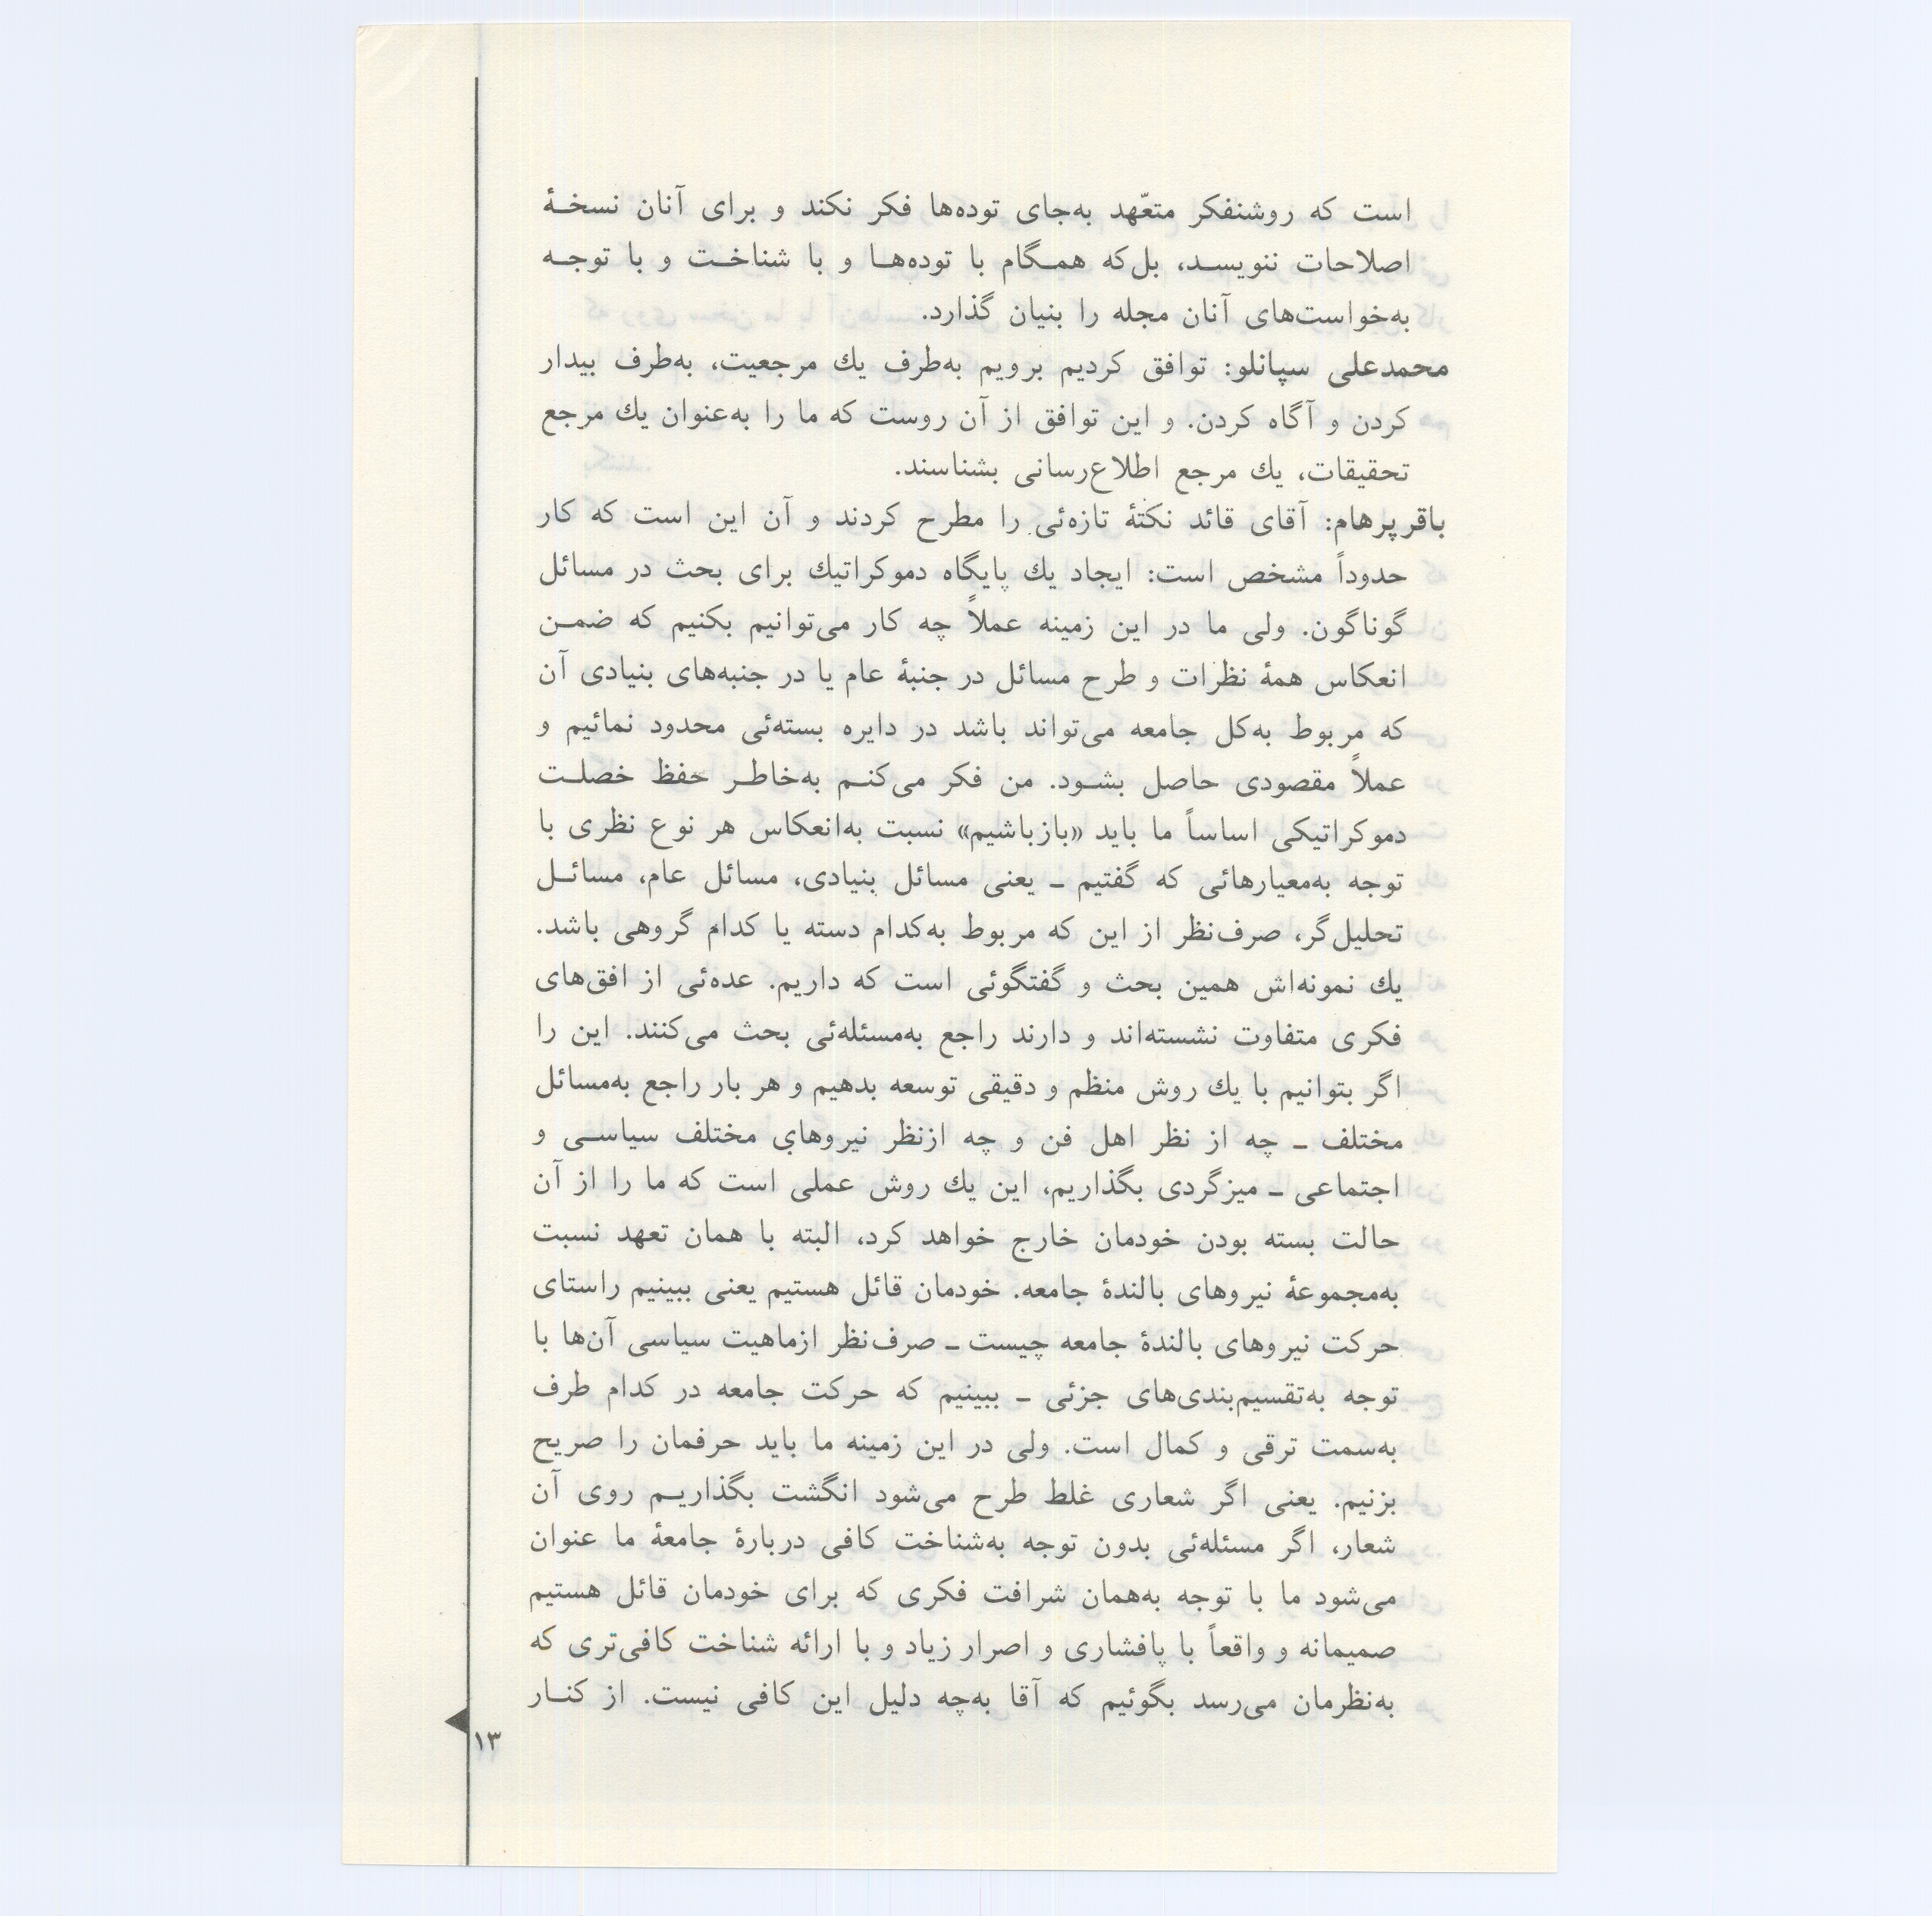 است که روشنفکر متعّهد به‌جای توده‌ها فکر نکند و برای آنان نسخـهٔ
اصلاحات ننویسـد، بل‌که همـگام با توده‌هـا و با شناخـت و با توجـه
به‌خواست‌های آنان مجله را بنیان گذارد.
محمدعلی سپانلو: توافق کردیم برویم به‌طرف یك مرجعیت، به‌طرف بیدار
کردن و آگاه کردن. و این توافق از آن روست که ما را به‌عنوان یك مرجع
تحقیقات، یك مرجع اطلاع‌رسانی بشناسند.
باقر پرهام: آقای قائد نکتهٔ تازه‌ئی را مطرح کردند و آن این است که کار
حدوداً مشخص است: ایجاد یك پایگاه دموکراتیك برای بحث در مسائل
گوناگون. ولی ما در این زمینه عملاً چه کار می‌توانیم بکنیم که ضمـن
انعکاس همهٔ نظرات و طرح مسائل در جنبهٔ عام یا در جنبه‌های بنیادی آن
که مربوط به‌کل جامعه می‌تواند باشد در دایره بسته‌ئی محدود نمائیم و
عملاً مقصودی حاصل بشـود. من فکر می‌کنـم به‌خاطـر حفظ خصلـت
دموکراتیکی اساساً ما باید «باز باشیم» نسبت به‌انعکاس هر نوع نظری با
توجه به‌معیارهائی که گفتیم ـ یعنی مسائل بنیادی، مسائل عام، مسائـل
تحلیل‌گر، صرف‌نظر از این که مربوط به‌کدام دسته یا کدام گروهی باشد.
یك نمونه‌اش همین بحث و گفتگوئی است که داریم. عده‌ئی از افق‌های
فکری متفاوت نشسته‌اند و دارند راجع به‌مسئله‌ئی بحث می‌کنند. این را
اگر بتوانیم با یك روش منظم و دقیقی توسعه بدهیم و هر بار راجع به‌مسائل
مختلف ـ چه از نظر اهل فن و چه ازنظر نیروهای مختلف سیاسـی و
اجتماعی ـ میزگردی بگذاریم، این یك روش عملی است که ما را از آن
حالت بسته بودن خودمان خارج خواهد کرد، البته با همان تعهد نسبت
به‌مجموعهٔ نیروهای بالندهٔ جامعه. خودمان قائل هستیم یعنی ببینیم راستای
حرکت نیروهای بالندهٔ جامعه چیست ـ صرف‌نظر ازماهیت سیاسی آن‌ها با
توجه به‌تقسیم‌بندی‌های جزئی ـ ببینیم که حرکت جامعه در کدام طرف
به‌سمت ترقی و کمال است. ولی در این زمینه ما باید حرفمان را صریح
بزنیم. یعنی اگر شعاری غلط طرح می‌شود انگشت بگذاریـم روی آن
شعار، اگر مسئله‌ئی بدون توجه به‌شناخت کافی دربارهٔ جامعهٔ ما عنوان
می‌شود ما با توجه به‌همان شرافت فکری که برای خودمان قائل هستیم
صمیمانه و واقعاً با پافشاری و اصرار زیاد و با ارائه شناخت کافی‌تری که
به‌نظرمان می‌رسد بگوئیم که آقا به‌چه دلیل این کافی نیست. از کنـار
۱۳